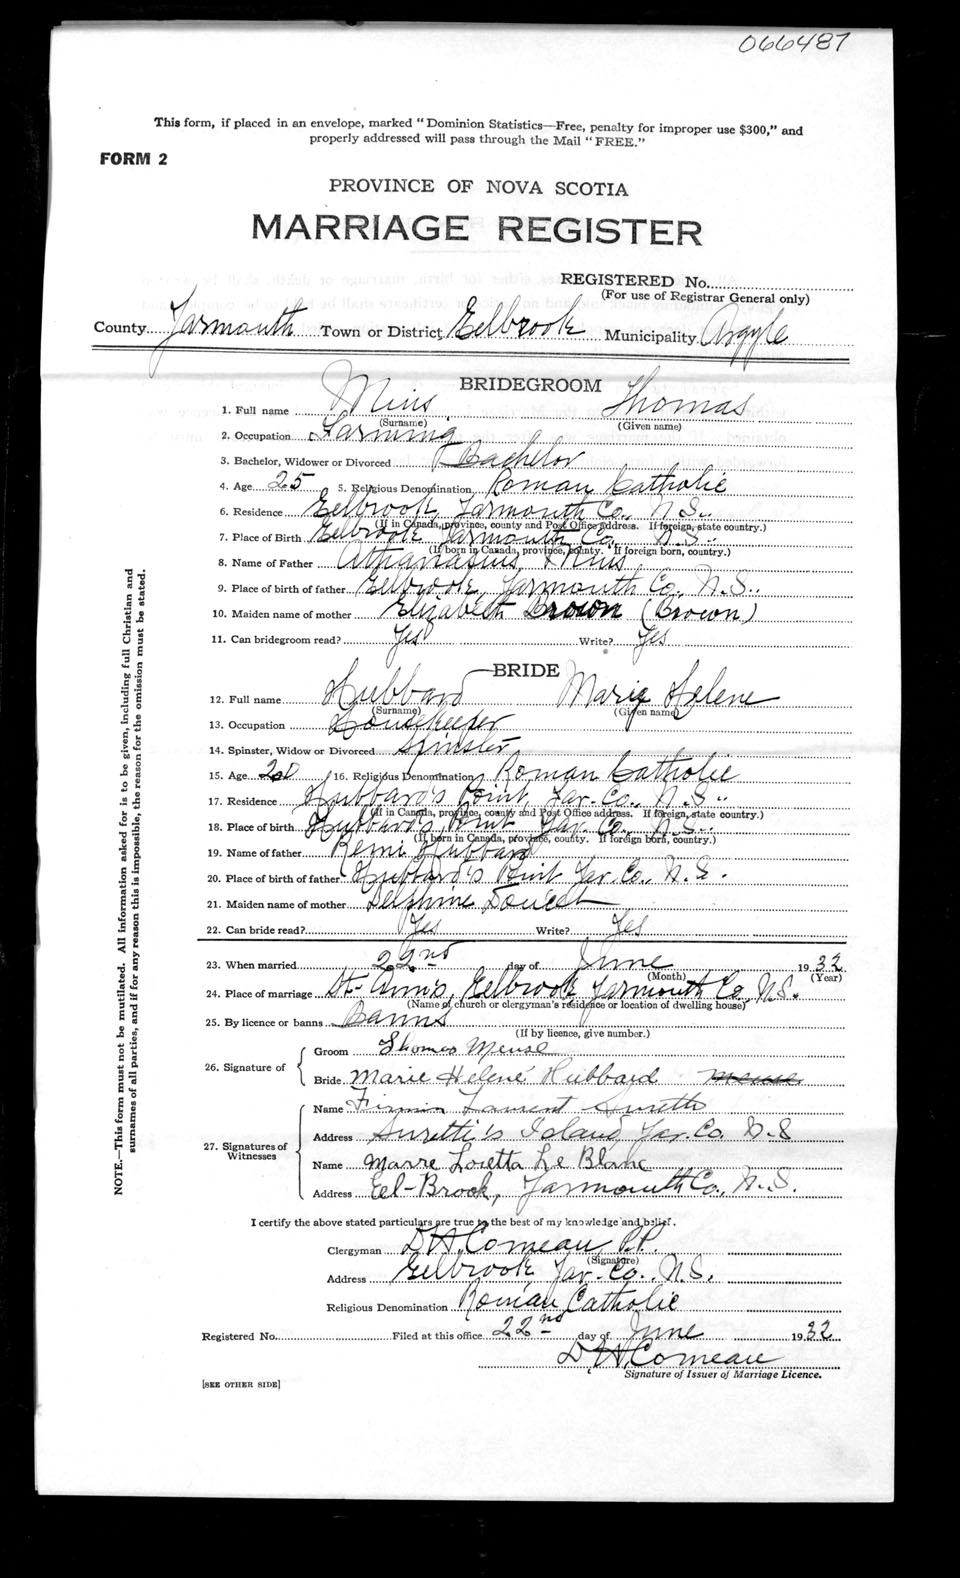 066487
This form, if placed in an envelope, marked "Dominion Statistics—Free, penalty for improper use $300," and
properly addressed will pass through the Mail "FREE."
FORM 2
PROVINCE OF NOVA SCOTIA
MARRIAGE REGISTER
REGISTERED No.
(For use of Registrar General only)
County Yarmouth Town or District Eelbrook Municipality Argyle
BRIDEGROOM
1. Full name Mius Thomas
(Surname) (Given name)
2. Occupation Farming
3. Bachelor, Widower or Divorced Bachelor
4. Age 25 5. Religious Denomination Roman Catholic
6. Residence Eelbrook, Yarmouth Co., N.S.
(If in Canada, province, county and Post Office address. If foreign, state country.)
7. Place of Birth Eelbrook Yarmouth Co., N.S.
(If born in Canada, province, county. If foreign born, country.)
8. Name of Father Athanasius Mius
9. Place of birth of father Eelbrook, Yarmouth Co., N.S.
10. Maiden name of mother Elizabeth Brown (Brown)
11. Can bridegroom read? Yes Write? Yes
BRIDE
12. Full name Hubbard Marie Helene
(Surname) (Given name)
13. Occupation Housekeeper
14. Spinster, Widow or Divorced Spinster
15. Age 20 16. Religious Denomination Roman Catholic
17. Residence Hubbard's Point, Yar. Co., N.S.
(If in Canada, province, county and Post Office address. If foreign, state country.)
18. Place of birth Hubbard's Point Yar. Co., N.S.
(If born in Canada, province, county. If foreign born, country.)
19. Name of father Remi Hubbard
20. Place of birth of father Hubbard's Point Yar. Co., N.S.
21. Maiden name of mother Delphine Doucet
22. Can bride read? Yes Write? Yes
23. When married 22nd day of June 1932
(Month) (Year)
24. Place of marriage St-Ann's, Eelbrook Yarmouth Co, N.S.
(Name of church or clergyman's residence or location of dwelling house)
25. By licence or banns Banns
(If by licence, give number.)
26. Signature of
Groom Thomas Meuse
Bride Marie Helene Hubbard Meuse
27. Signatures of Witnesses
Name Firmin Surette
Address Surette's Island Yar. Co. N.S
Name Marie Loretta Le Blanc
Address Eel-Brook, Yarmouth Co., N.S.
I certify the above stated particulars are true to the best of my knowledge and belief.
Clergyman D H. Comeau P.P.
(Signature)
Address Eelbrook, Yar. Co., N.S.
Religious Denomination Roman Catholic
Registered No. Filed at this office 22nd day of June 1932
D H. Comeau
Signature of Issuer of Marriage Licence.
[SEE OTHER SIDE]
NOTE.—This form must not be mutilated. All information asked for is to be given, including full Christian and
surnames of all parties, and if for any reason this is impossible, the reason for the omission must be stated.